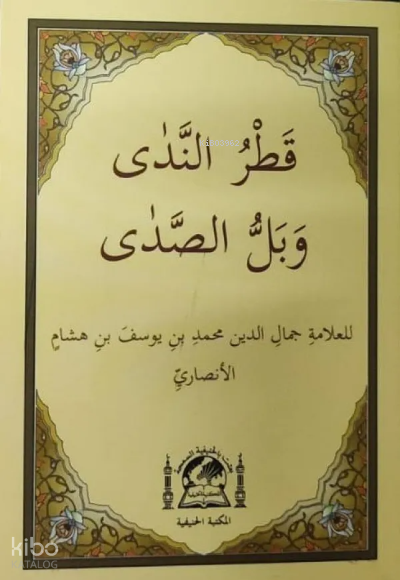 قَطْرُ النَّدٰى
وَبَلُّ الصَّدٰى
للعلامةِ جمالِ الدين محمدِ بنِ يوسفَ بنِ هشامٍ
الأنصاريِّ
المكتبة الحنيفية
kibo
KATALOG